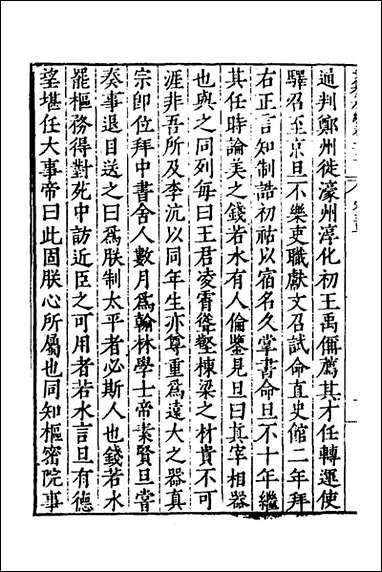 通判鄭州徙濠州淳化初王禹偁薦其才任轉運使
驛召至京旦不樂吏職獻文召試命直史館二年拜
右正言知制誥初祜以宿名久掌書命旦不十年繼
其任時論美之錢若水有人倫鑒見旦曰真宰相器
也與之同列每曰王君凌霄聳壑棟梁之材貴不可
涯非吾所及李沆以同年生亦尊重為遠大之器真
宗即位拜中書舍人數月為翰林學士帝素賢旦嘗
奏事退目送之曰為朕制太平者必斯人也錢若水
罷樞務得對苑中訪近臣之可用者若水言旦有德
望堪任大事帝曰此固朕心所屬也同知樞密院事